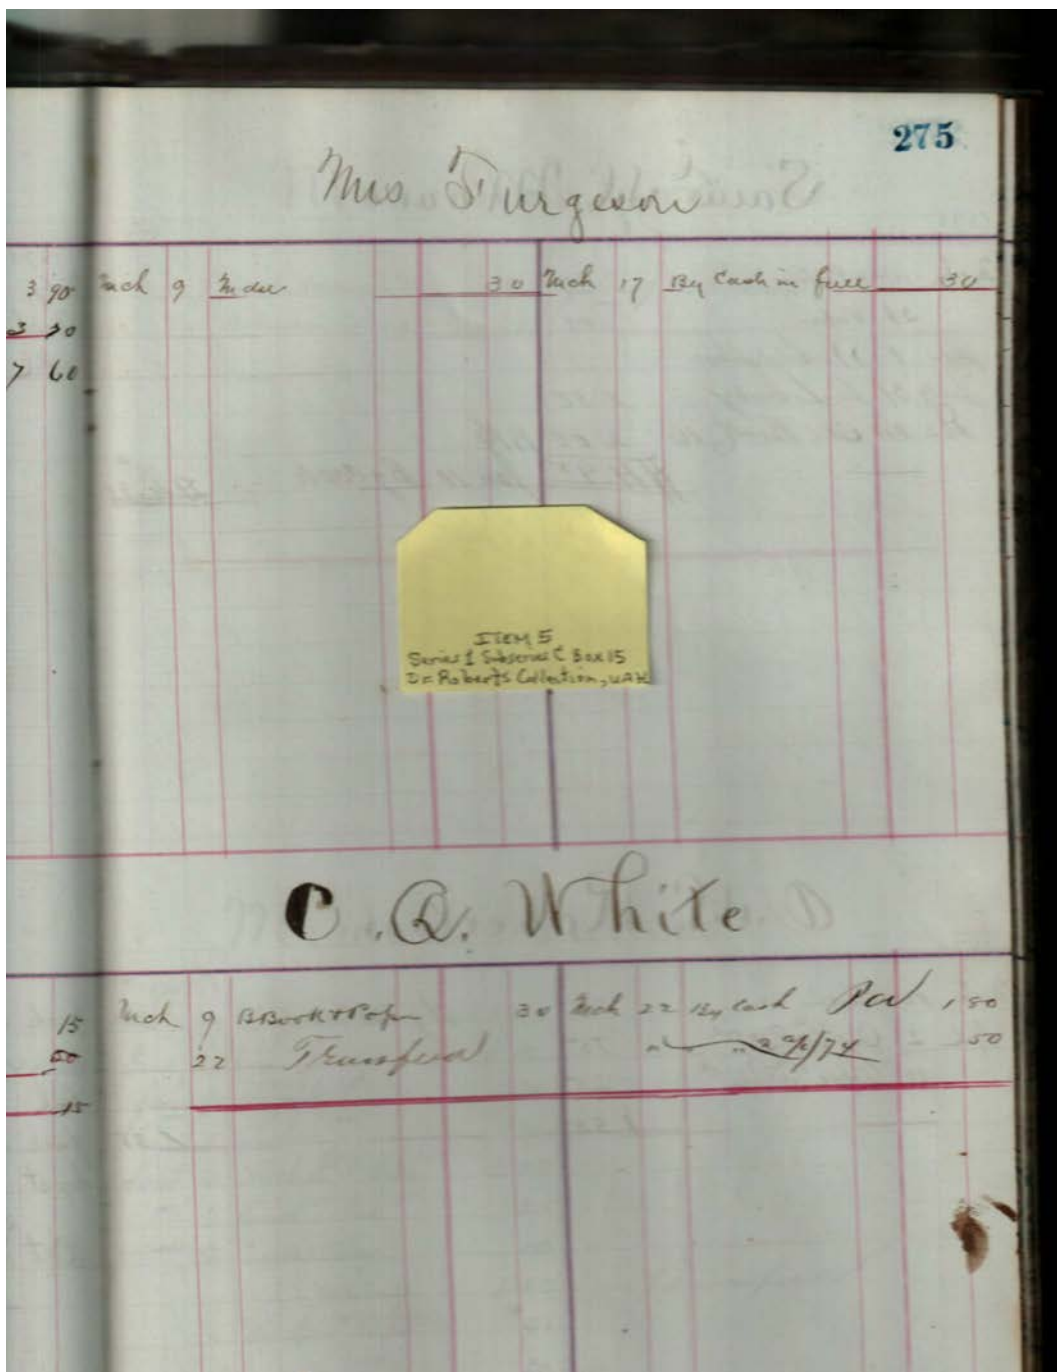 275
Mrs Furgeson
3 90 Mch 9 Mdse 30 Mch 17 By Cash in full 30
3 70
7 60
ITEM 5
Series 1 Subseries C Box 15
Dr Roberts Collection, UAH
C. Q. White
15 Mch 9 BBook & 30 Mch 22 By Cash Pd 1 80
50 22 Transferd " " 50
15